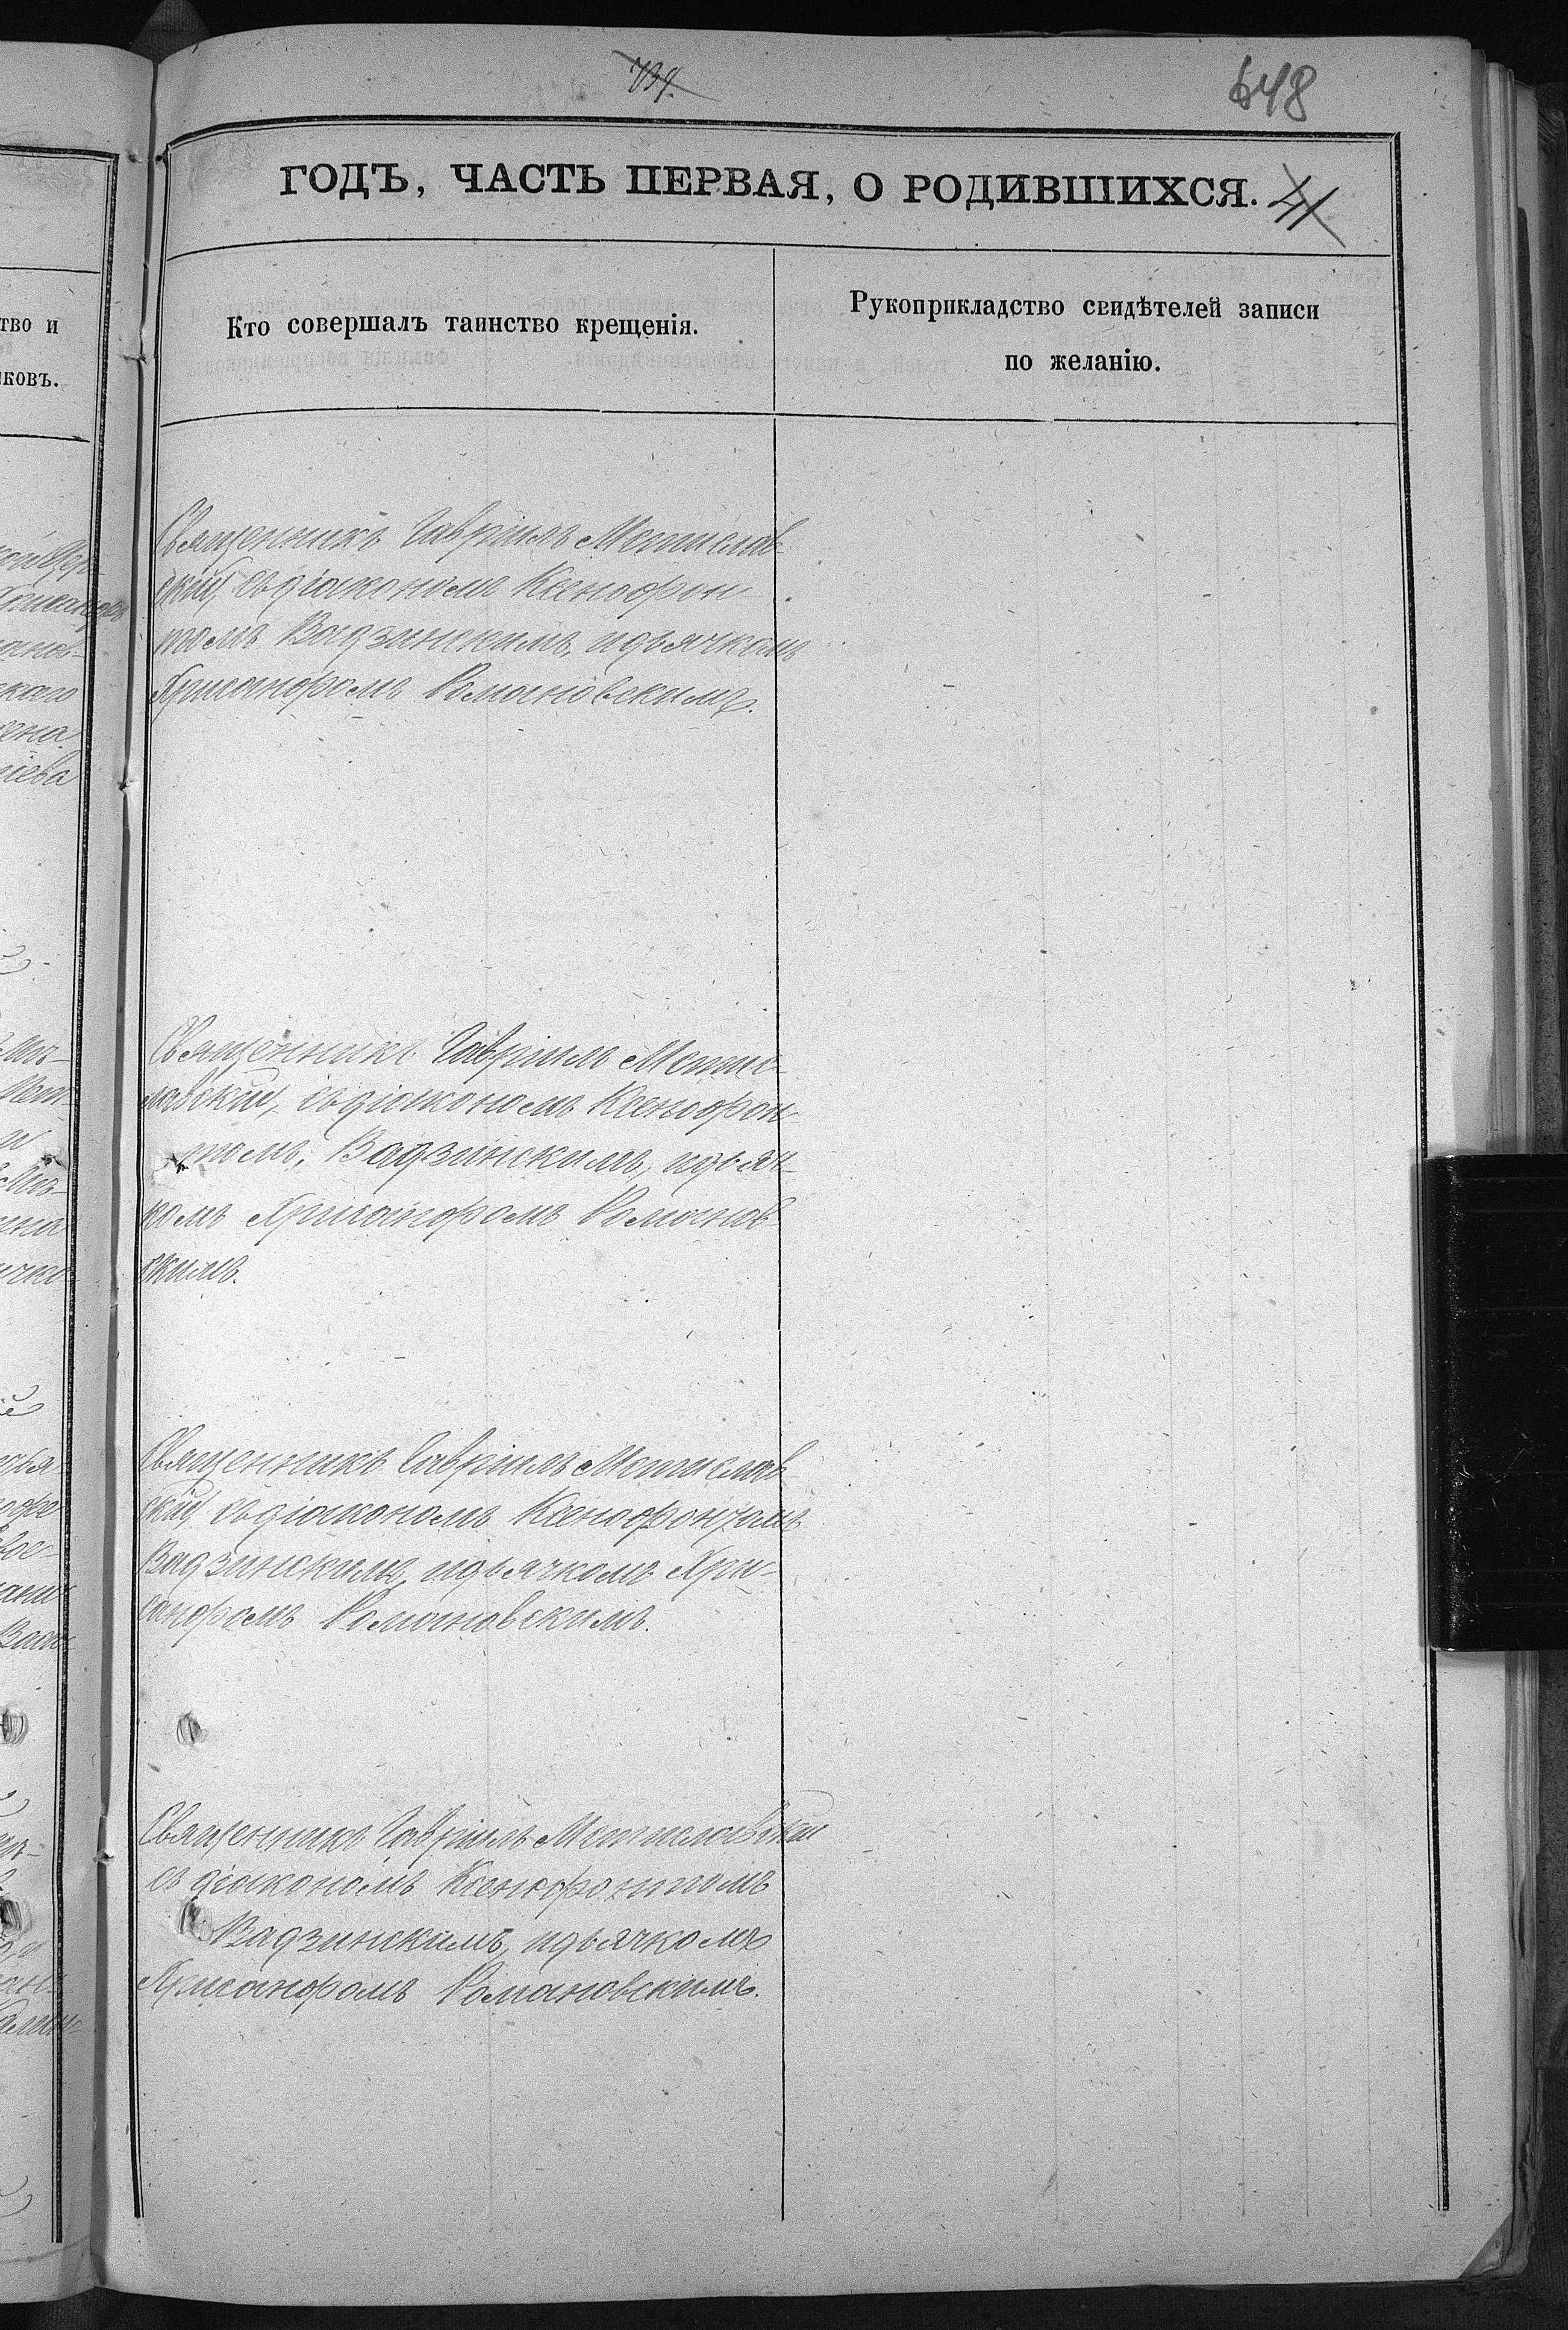 739.
648
ГОДЪ, ЧАСТЬ ПЕРВАЯ, О РОДИВШИХСЯ. 41
Кто совершалъ таинство крещенія.
Рукоприкладство свидѣтелей записи
по желанію.
тво и
иковъ.
Священникъ Гавріилъ Мстислав-
скій, съ діакономъ Ксенофон-
томъ Вадзинскимъ, и дьячкомъ
Хрисанфомъ Романовскимъ.
Священникъ Гавріилъ Мстис-
лавскій, съ діакономъ Ксенофон-
томъ, Вадзинскимъ, и дьяч-
комъ Хрисанфомъ Романов-
скимъ.
Священникъ Гавріилъ Мстислав-
скій съ діакономъ Ксенофонтомъ
Вадзинскимъ, и дьячкомъ Хри-
санфомъ Романовскимъ.
Священникъ Гавріилъ Мстиславскій
съ діакономъ Ксенофонтомъ
Вадзинскимъ, и дьячкомъ
Хрисанфомъ Романовскимъ.